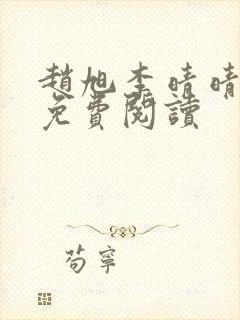 趙旭李晴晴
免費閱讀
苟寧